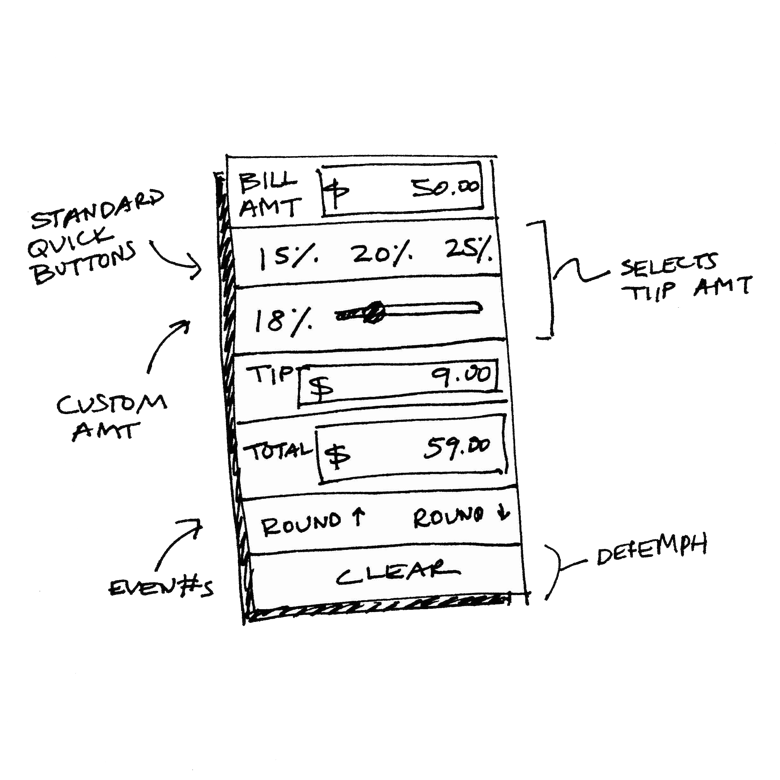 BILL
AMT
$ 50.00
STANDARD
QUICK
BUTTONS
15% 20% 25%
SELECTS
TIP AMT
18%
CUSTOM
AMT
TIP $ 9.00
TOTAL $ 59.00
ROUND ↑ ROUND ↓
EVEN #S
CLEAR